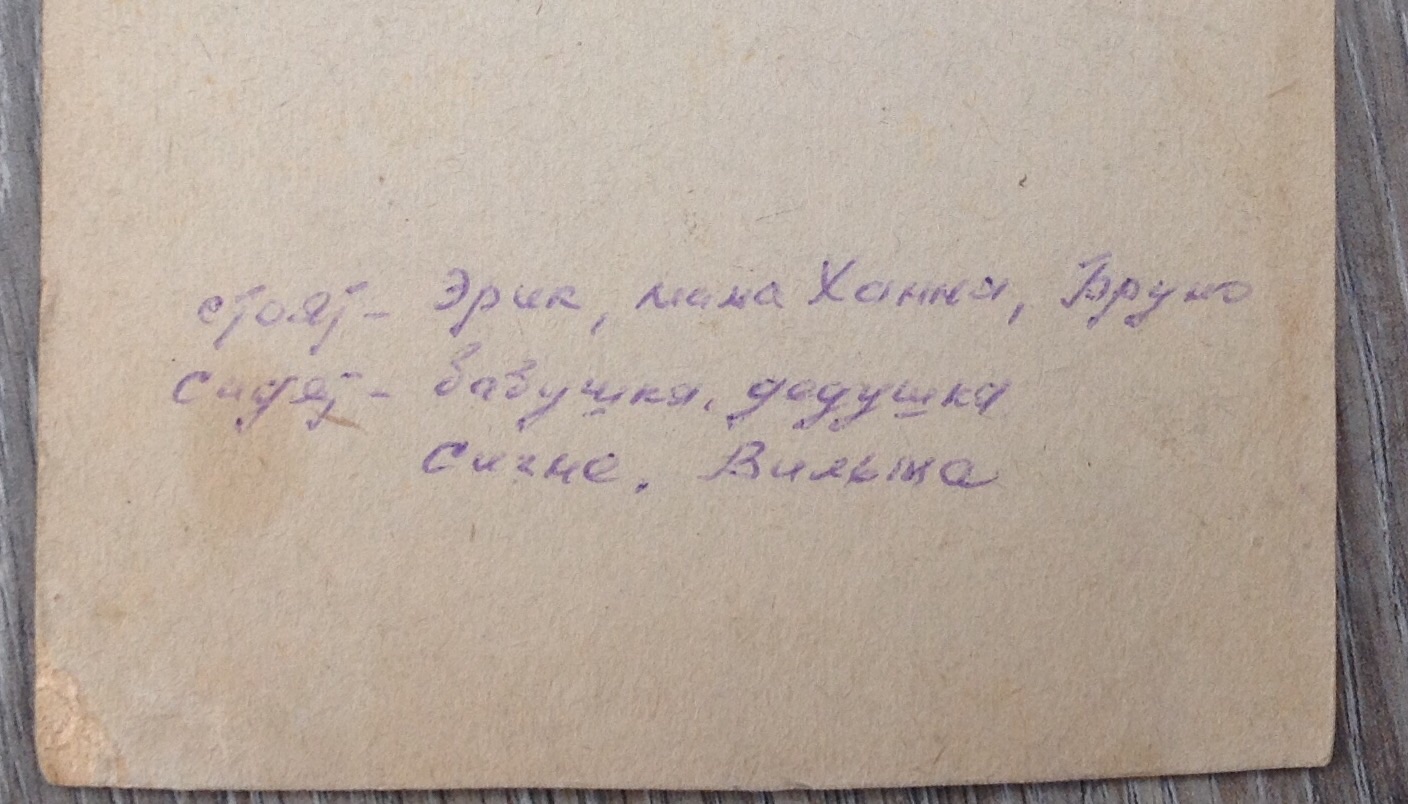 стоят - Эрик, мама Ханна, Бруно
сидят - бабушка, дедушка
Сигне. Вильма